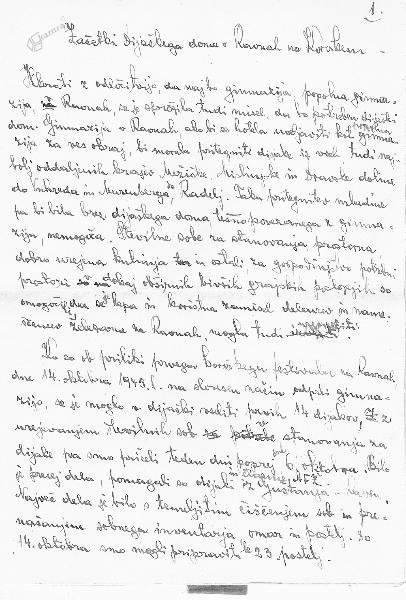 1.
Začetki dijaškega doma v Ravnah na Koroškem
Hkrati z odločitvijo, da najde gimnazija, popolna gimna-
zija, v Ravnah, se je sprožila tudi misel, da bo potreben dijaški
dom. Gimnazija v Ravnah, ako bi se hotla uveljaviti kot popolna gimna-
zija za ves okraj, bi morala pritegniti dijake iz vseh tudi naj-
bolj oddaljenih krajev Mežiške, Mislinjske in Dravske doline
do in Radelj. Taka pritegnitev mladine
pa bi bila brez dijaškega doma, tesno povezanega z gimna-
zijo, nemogoča. Številne sobe za stanovanja, prostorna,
dobro urejena kuhinja in ostali, za gospodinjstvo potrebni
prostori obširnih bivših grajskih poslopij so
omogočili, da se je lepa in koristna zamisel delavcev in name-
ščencev železarne na Ravnah, mogla tudi uresničiti.
Ko so ob priliki prvega koroškega festivala na Ravnah
dne 14. oktobra 1945. l. na skromen način odprli gimna-
zijo, se je moglo v dijaški naseliti prvih 14 dijakov. Z
urejevanjem številnih sob za stanovanja za
dijake pa smo pričeli teden dni poprej, 6. oktobra. Bilo
je precej dela, pomagali so dijaki iz Guštanja
Največ dela je bilo s temeljitim čiščenjem sob in pre-
našanjem sobnega inventarja omar in postelj. Do
14. oktobra smo mogli pripraviti le 23 postelj.